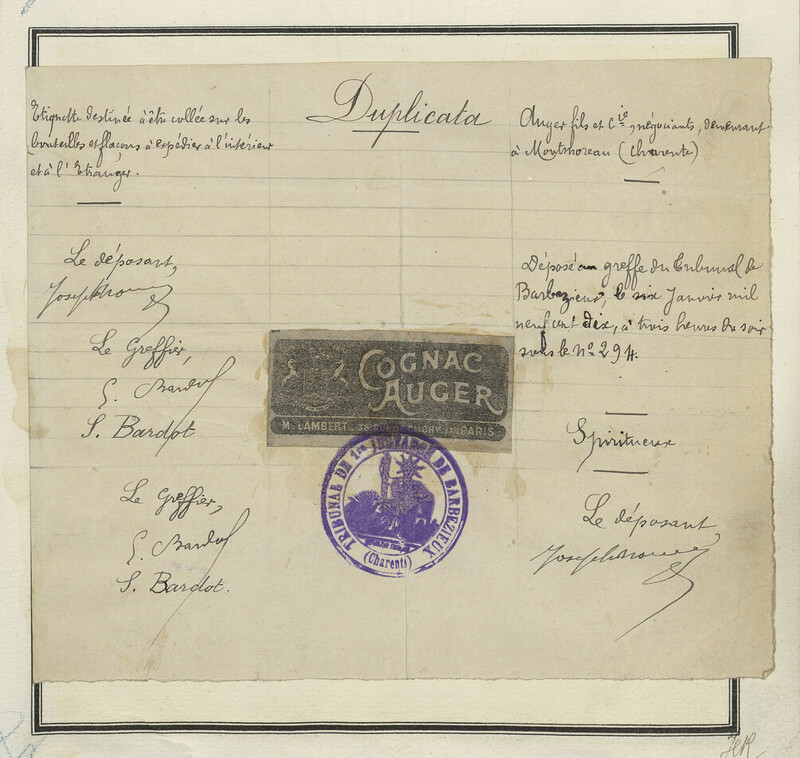 Duplicata
Etiquette destinée à être collée sur les
bouteilles et flacons à expédier à l'intérieur
et à l'Etranger.
Le déposant,
Le Greffier,
S. Bardot
Le Greffier,
S. Bardot.
Auger fils et Cie, négociants, demeurant
à Montmoreau (Charente)
Déposé au greffe du Tribunal de
Barbezieux, le six Janvier mil
neuf cent dix, à trois heures du soir
sous le No 294.
Spiritueux
Le déposant,
COGNAC
AUGER
M. LAMBERT. 38 RUE DE CLICHY. PARIS
TRIBUNAL DE 1re INSTANCE DE BARBEZIEUX
(Charente)